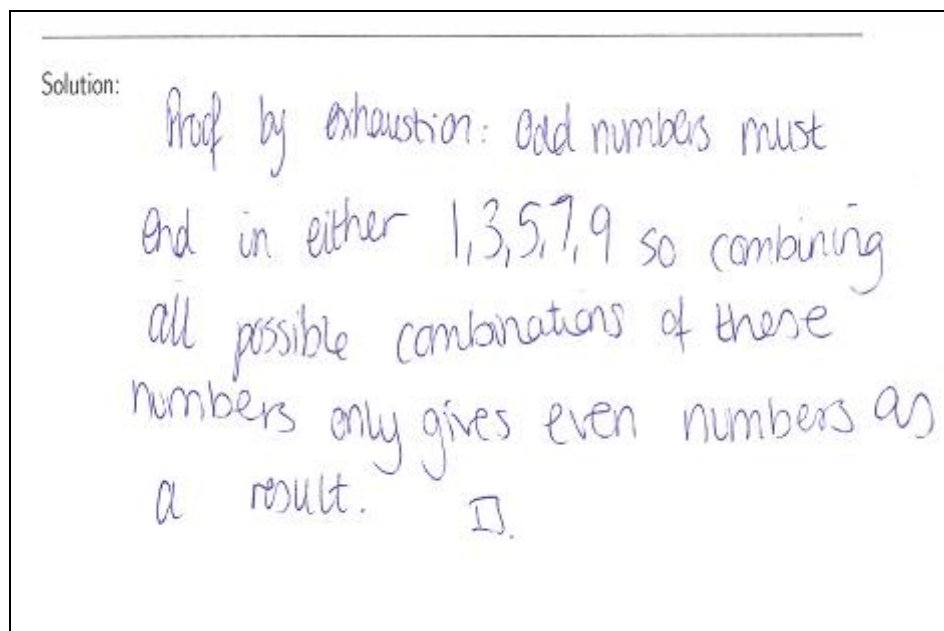 Solution:
Proof by exhaustion: odd numbers must
end in either 1,3,5,7,9 so combining
all possible combinations of these
numbers only gives even numbers as
a result. □.